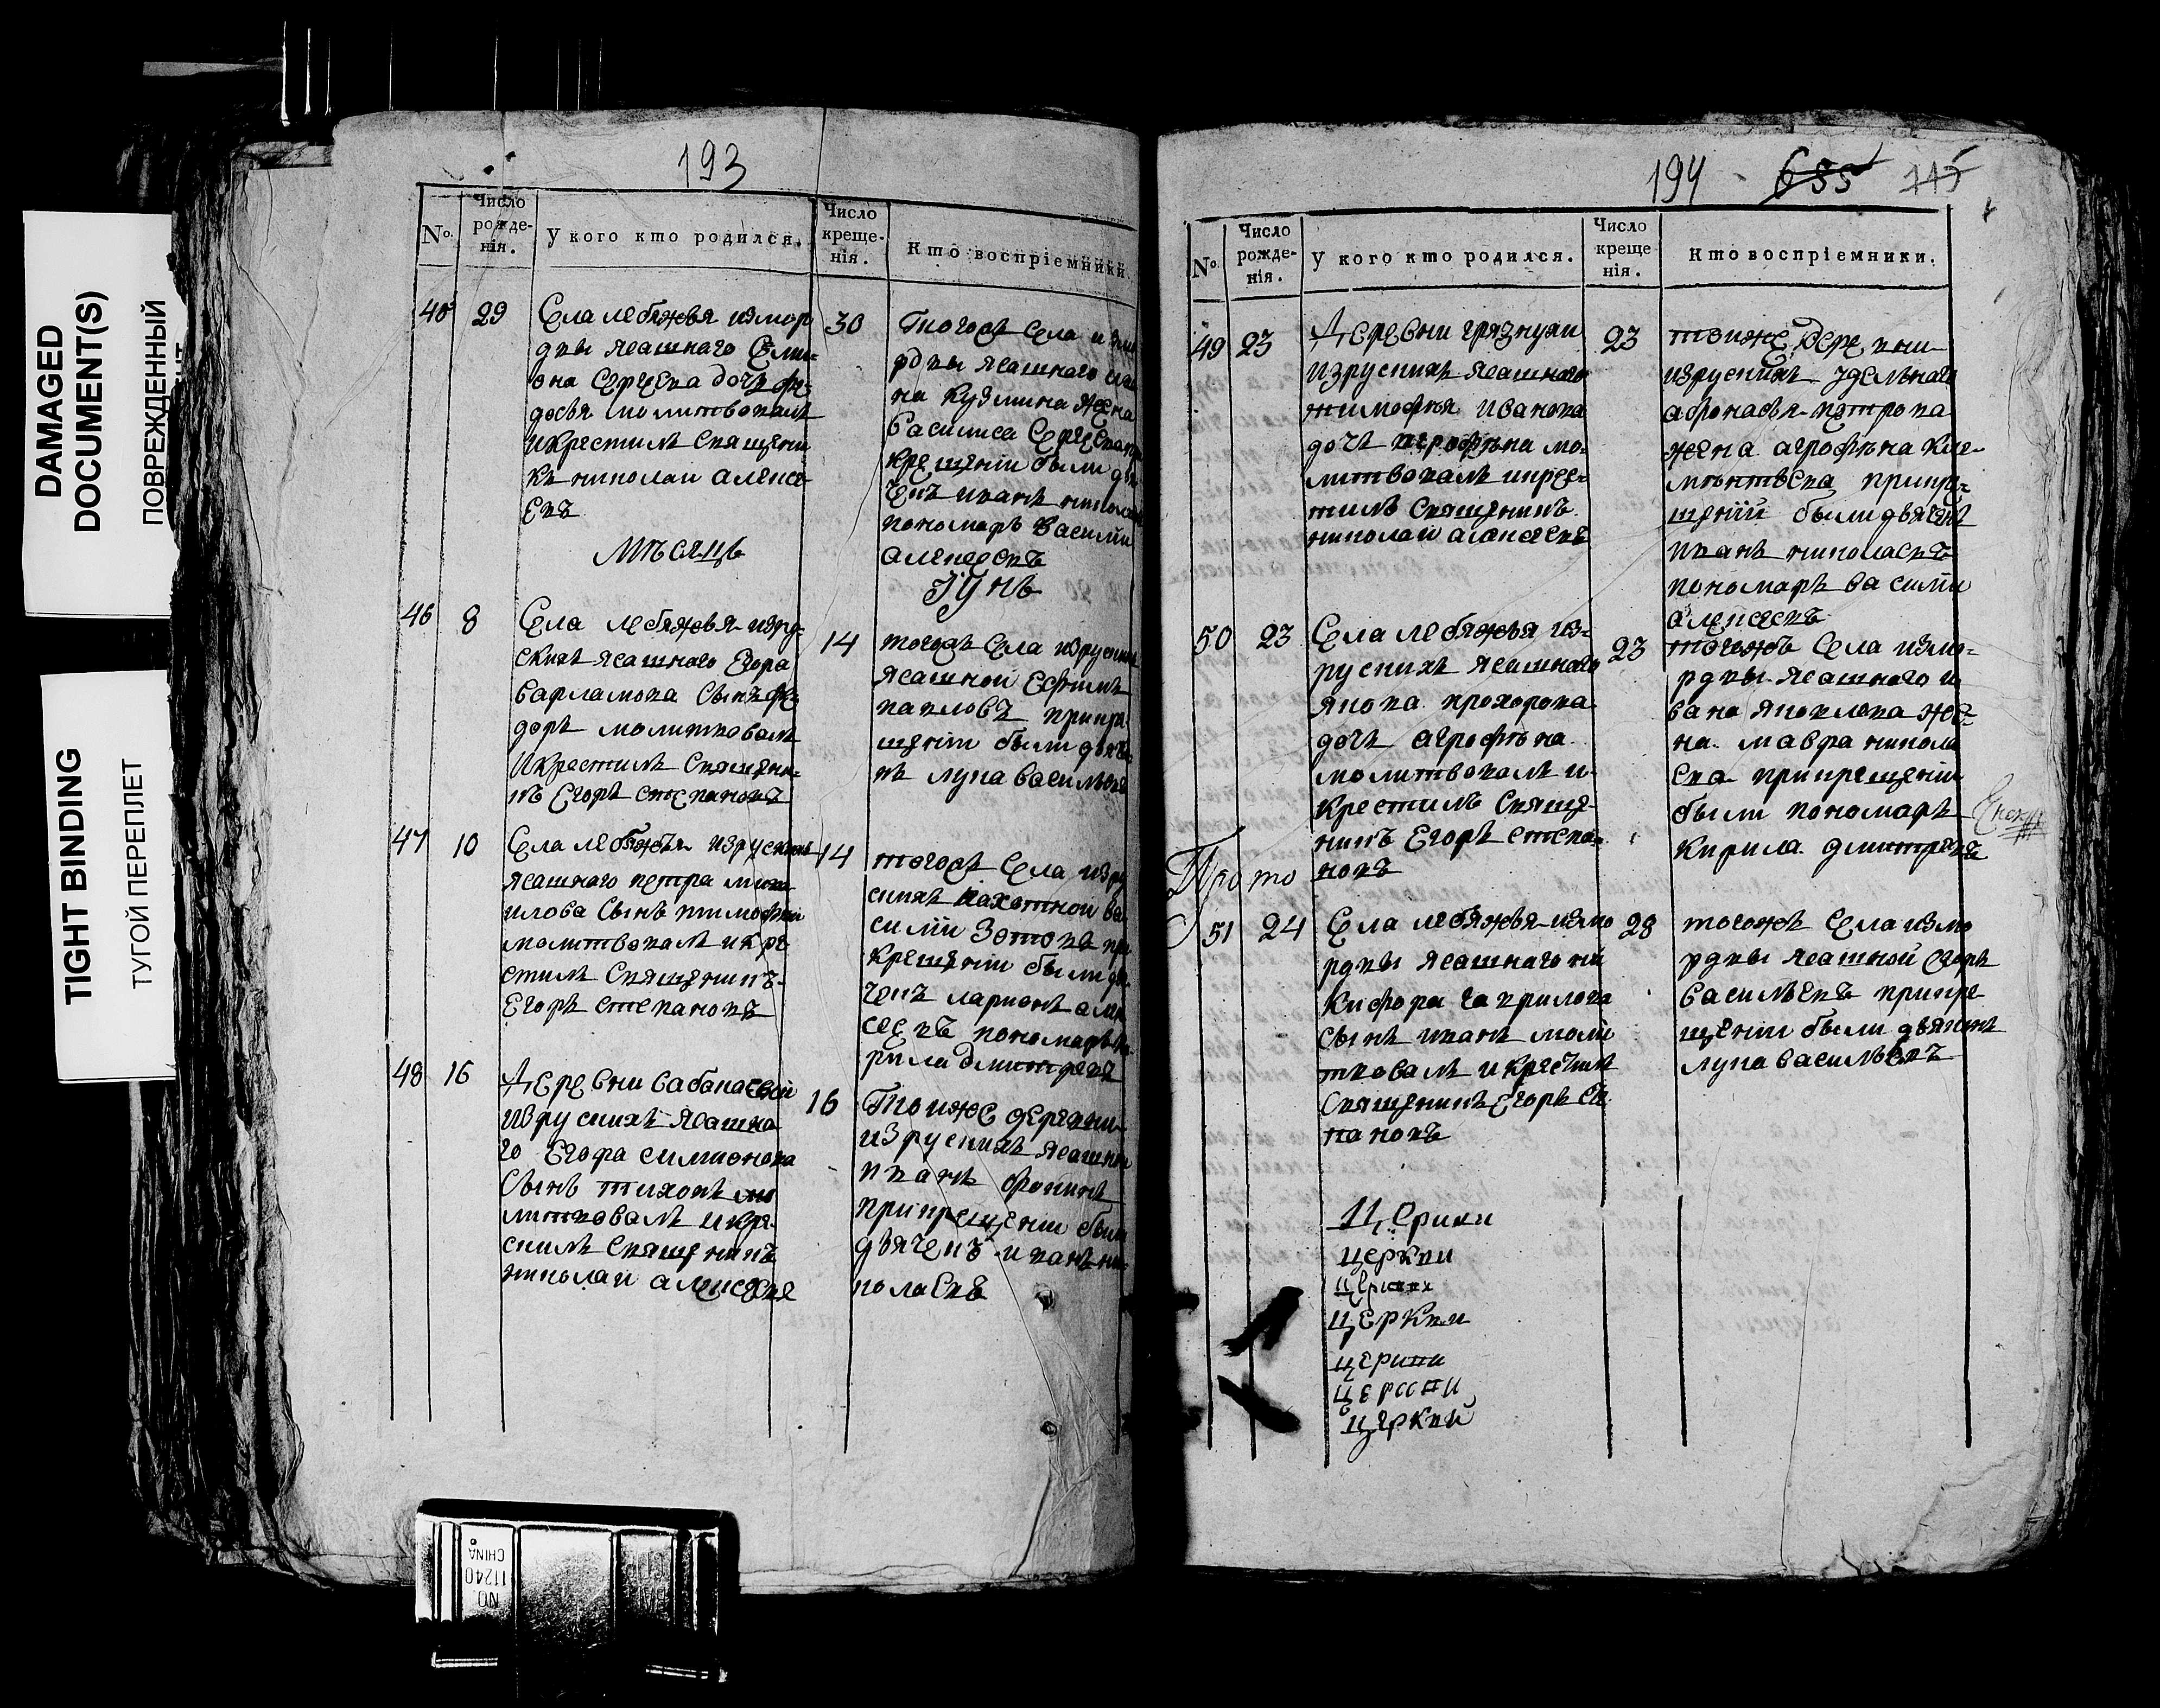 DAMAGED
DOCUMENT(S)
ПОВРЕЖДЕННЫЙ
TIGHT BINDING
ТУГОЙ ПЕРЕПЛЕТ
193
№.
Число
рожде-
нія.
У кого кто родился.
Число
креще-
нія.
Кто воспріемники.
29
Села лебяжья измор
двы ясашнаго Сими-
она Сергеева дочь фе-
досья молитвовалъ
икрестилъ Священи-
къ николаи алексе-
евъ
30
Тогожъ Села измо
рдвы ясашнаго
на кузмина жена
василиса Сергеева
крещении были дья
чекъ иванъ никола
пономарь василий
алексеевъ
Мѣсяцъ
Iунь
46
8
Села лебяжья изру-
скихъ ясашнаго Егора
варламова Сынъ фе-
доръ молитвовалъ
икрестилъ Священи-
къ Егоръ степановъ
14
тогожъ Села изруских
ясашной Ефимъ
павловъ прикре-
щении были дьячо-
къ лупа васильевъ
47
10
Села лебяжья изруских
ясашнаго петра миха-
илова Сынъ тимофеи
молитвовалъ икре
стилъ Священникъ
Егоръ степановъ
14
тогожъ Села изру
скихъ пахотной ва
силии Зотовъ при
крещении были дья-
чекъ ларионъ алек
сеевъ пономарь ки-
рила дмитревъ
48
16
Деревни вабанаевой
изрускихъ ясашна-
го Егора симионова
Сынъ тихонъ мо
литвовалъ икре-
стилъ Священникъ
николаи алексеевъ
16
Тоиже деревни
изрускихъ ясашной
иванъ фокинъ
прикрещении были
дьячекъ иванъ ни-
колаевъ
194
655
115
№.
Число
рожде-
нія.
У кого кто родился.
Число
креще
нія.
Кто воспріемники.
49
23
Деревни грязнухи
изрускихъ ясашнаго
тимофея иванова
дочь агрофѣна мо-
литвовалъ икрес-
тилъ Священникъ
николаи алексеевъ
23
тоиже деревни
изрускихъ удельнаго
афонасья петрова
жена агрофѣна кле-
мѣнтьева прикре-
щении были дьячекъ
иванъ николаевъ
пономарь василии
алексеевъ
50
23
Села лебяжья из-
рускихъ ясашнаго
якова прохорова
дочь агрофѣна
молитвовалъ и-
крестилъ Свяще-
никъ Егоръ степа-
новъ
23
тогожъ Села измо-
рдвы ясашнаго и
вана яковлева же-
на мавра никола
ева прикрещении
были пономарь
кирила дмитревъ
Прото
51
24
Села лебяжья измо
рдвы ясашнаго ни
кифора гаврилова
Сынъ иванъ моли
твовалъ икрестилъ
Священникъ Егоръ Сте
пановъ
28
тогожъ Села измо
рдвы ясашной егоръ
васильевъ прикре
щении были дьячекъ
лупа васильевъ
церкви
церкви
церкви
церкви
церкви
церкви
церкви
NO
11240
CHINA